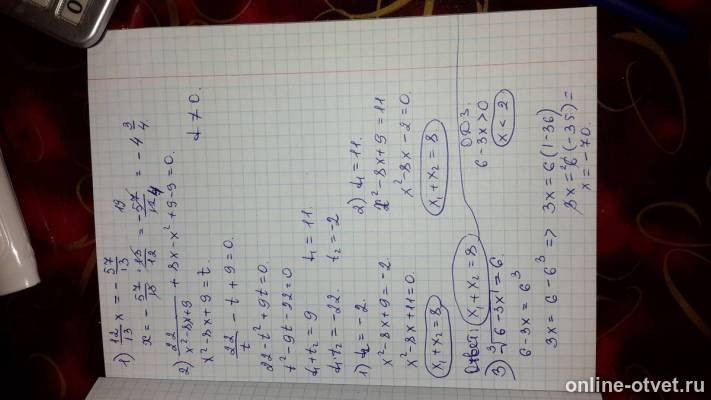 1) 12/13 x = - 57/13
x = - 57/13 · 13/12 = - 57/12 = -4 3/4.
19
4
2) 22/x²-8x+9 + 8x-x²+9-9=0.
x²-8x+9=t.
t≠0.
22/t - t+9=0.
22-t²+9t=0.
t²-9t-22=0
t₁+t₂=9 t₁=11.
t₁·t₂=-22. t₂=-2
1) t₂=-2.
x²-8x+9=-2.
x²-8x+11=0.
x₁+x₂=8
2) t₁=11.
x²-8x+9=11
x²-8x-2=0.
x₁+x₂=8
Ответ: x₁+x₂=8.
3) ³√6-3x=6.
ОДЗ.
6-3x=6³
6-3x>0
3x=6-6³ =>
x<2
3x=6(1-36)
3x=6(-35)=
x=-70.
online-otvet.ru